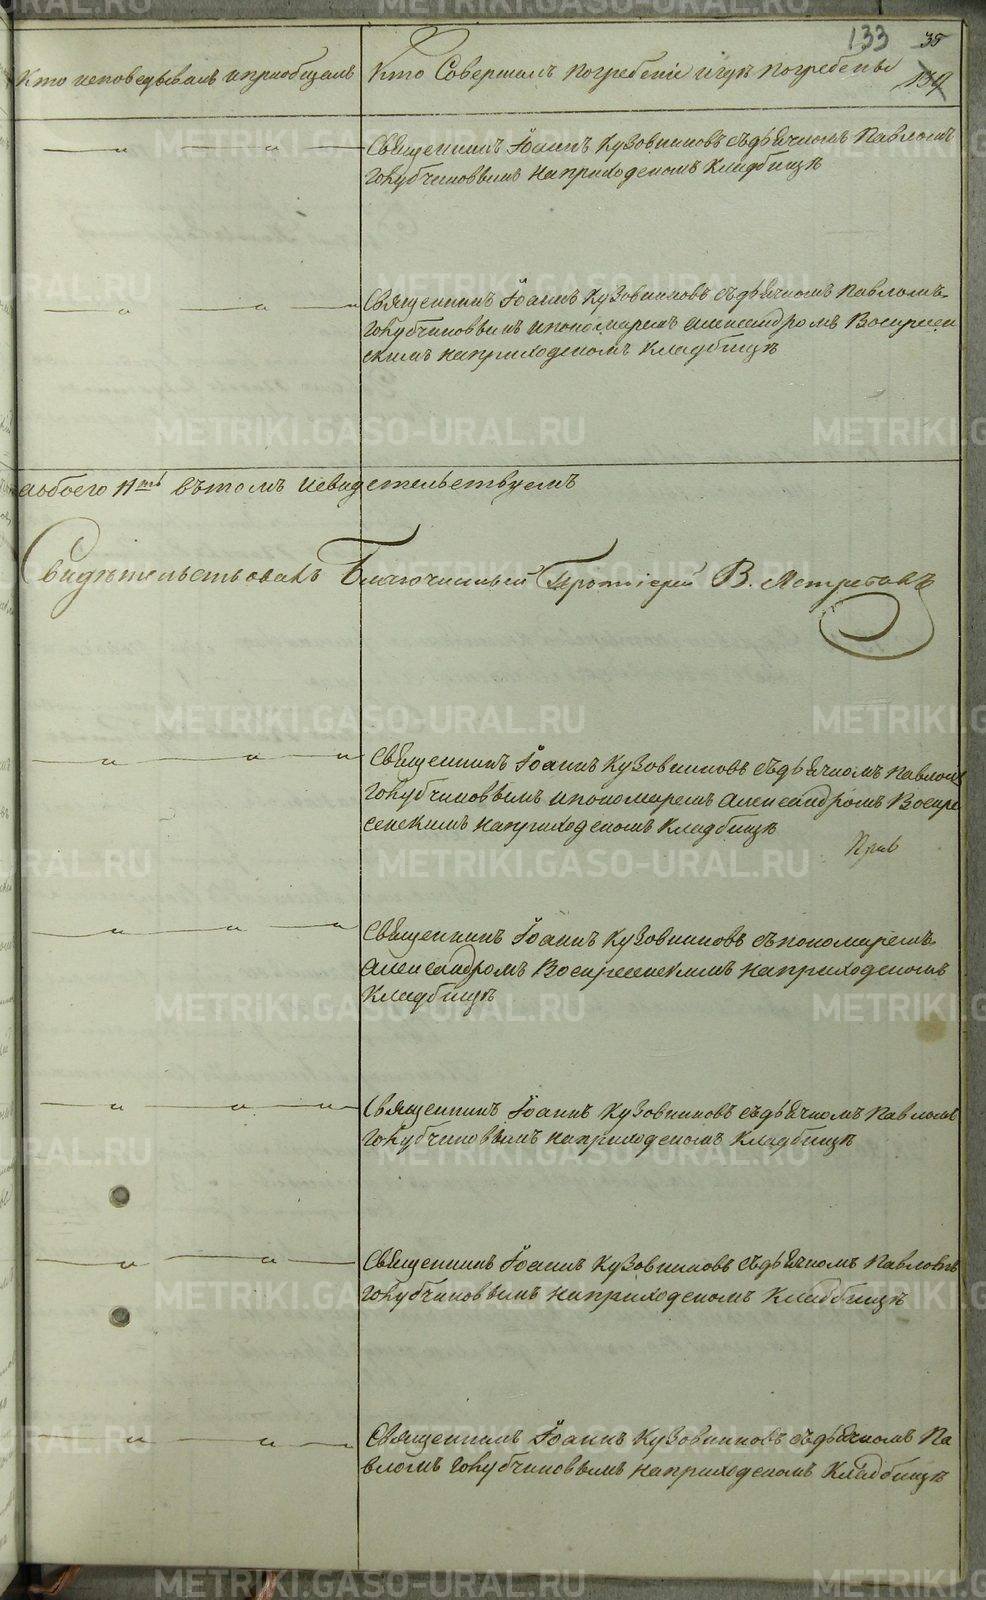 133 35
134
Кто исповедывалъ и приобщалъ
Кто Совершалъ погребеніе и гдѣ погребены
Священникъ Іоаннъ Кузовниковъ съ дьячкомъ Павломъ
Голубчиковымъ на приходскомъ кладбищѣ
Священникъ Іоаннъ Кузовниковъ съ дьячкомъ Павломъ
Голубчиковымъ и пономаремъ Александромъ Воскресен
скимъ на приходскомъ кладбищѣ
а обоего 11ть въ томъ и свидетельствуемъ
Свидѣтельствовалъ Благочинный Протоіерей В. Ястребовъ
Священникъ Іоаннъ Кузовниковъ съ дьячкомъ Павломъ
Голубчиковымъ и пономаремъ Александромъ Воскре
сенскимъ на приходскомъ кладбищѣ
Священникъ Іоаннъ Кузовниковъ съ пономаремъ
Александромъ Воскресенскимъ на приходскомъ
кладбищѣ
Священникъ Іоаннъ Кузовниковъ съ дьячкомъ Павломъ
Голубчиковымъ на приходскомъ кладбищѣ
Священникъ Іоаннъ Кузовниковъ съ дьячкомъ Павломъ
Голубчиковымъ на приходскомъ кладбищѣ
Священникъ Іоаннъ Кузовниковъ съ дьячкомъ Па
вломъ Голубчиковымъ на приходскомъ кладбищѣ
METRIKI.GASO-URAL.RU